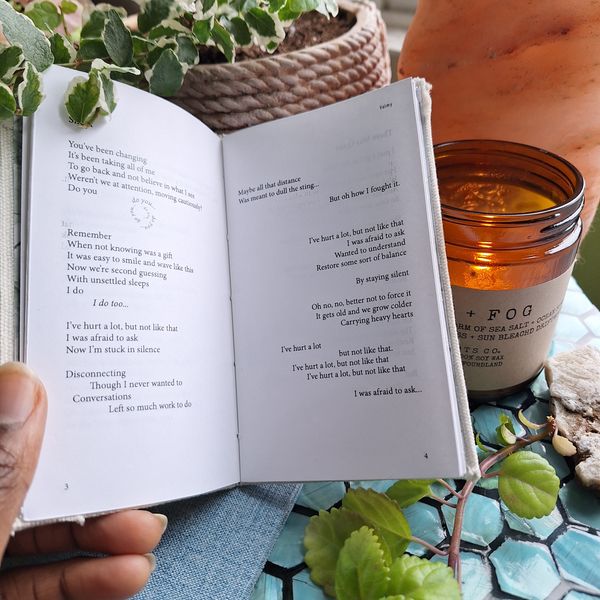 You've been changing
It's been taking all of me
To go back and not believe in what I see
Weren't we at attention, moving cautiously?
Do you
do you,
Remember
When not knowing was a gift
It was easy to smile and wave like this
Now we're second guessing
With unsettled sleeps
I do
I do too...
I've hurt a lot, but not like that
I was afraid to ask
Now I'm stuck in silence
Disconnecting
Though I never wanted to
Conversations
Left so much work to do
3
Valmy
Maybe all that distance
Was meant to dull the sting...
But oh how I fought it.
I've hurt a lot, but not like that
I was afraid to ask
Wanted to understand
Restore some sort of balance
By staying silent
Oh no, no, better not to force it
It gets old and we grow colder
Carrying heavy hearts
I've hurt a lot but not like that.
I've hurt a lot, but not like that
I've hurt a lot, but not like that
I was afraid to ask...
4
+ FOG
OF SEA SALT + OCEAN
+ SUN BLEACHD
CO.
SOY WAX